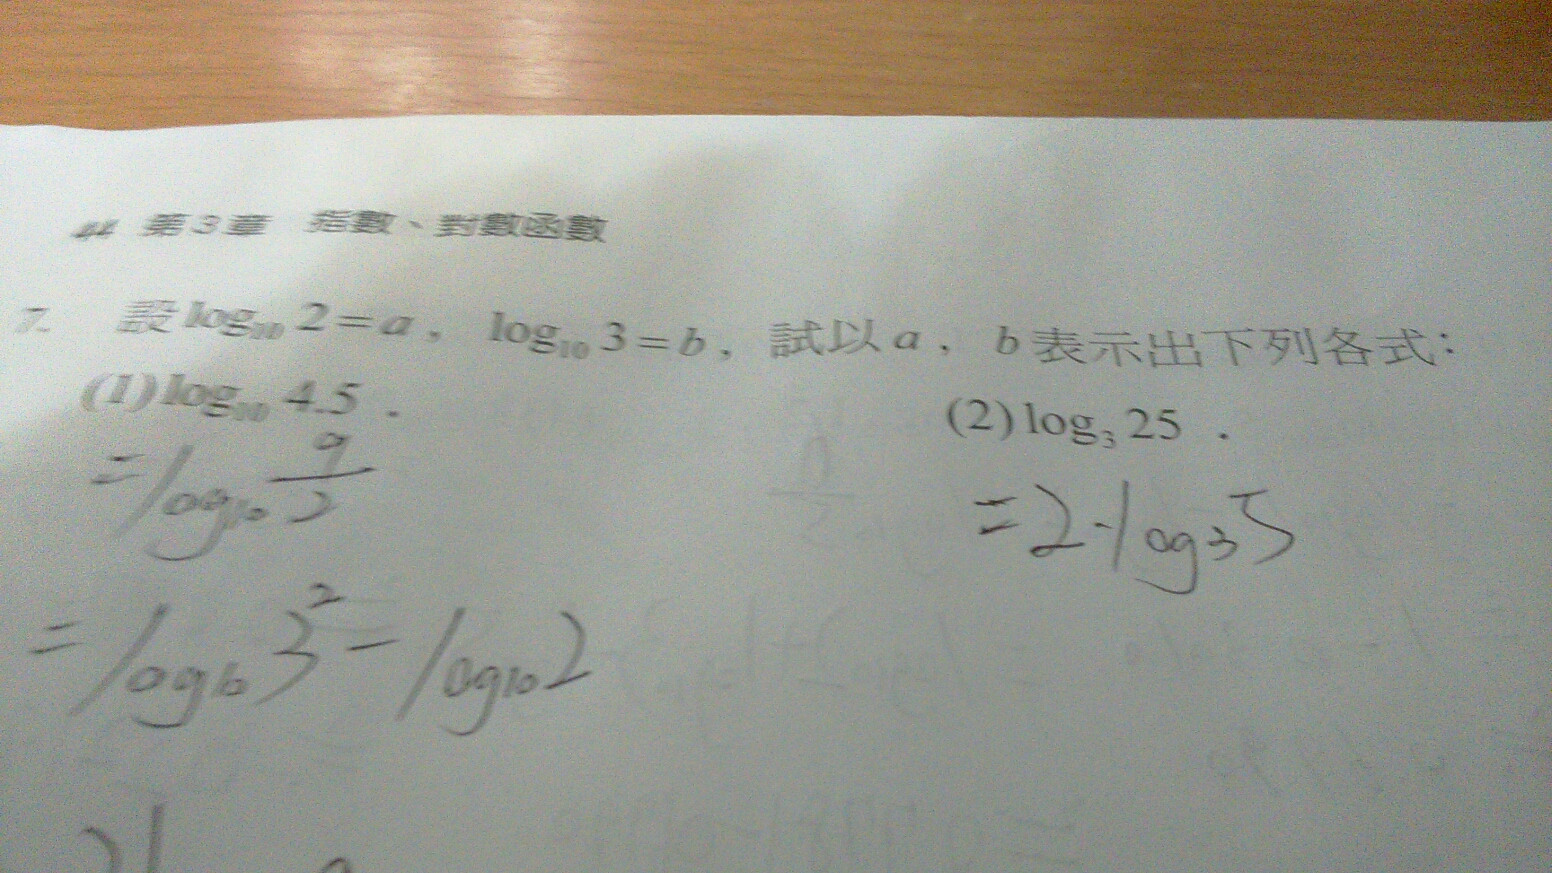 44 第3章 指數、對數函數
7. 設 log₁₀ 2 = a, log₁₀ 3 = b, 試以 a, b 表示出下列各式:
(1) log₁₀ 4.5 .
= log₁₀ 9/2
= log₁₀ 3² - log₁₀ 2
(2) log₃ 25 .
= 2 · log₃ 5